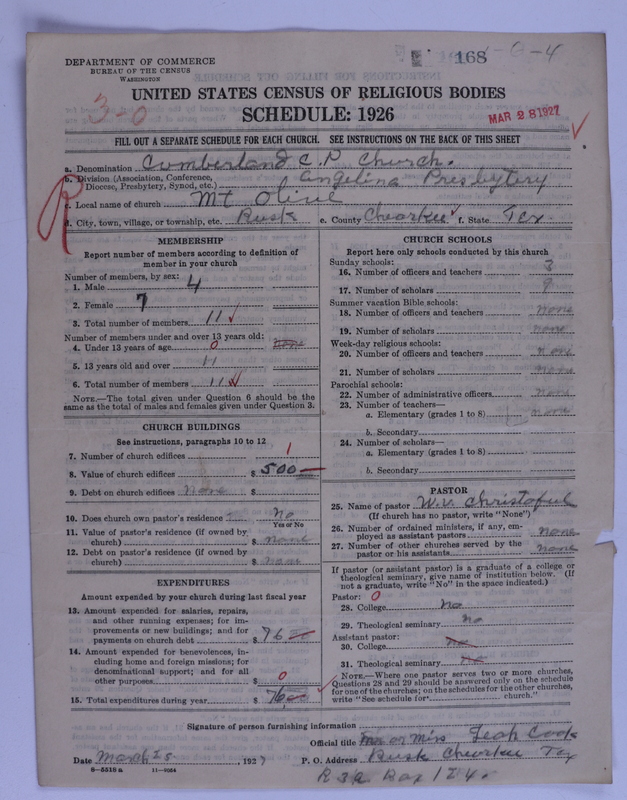 168 -0-4
DEPARTMENT OF COMMERCE
BUREAU OF THE CENSUS
WASHINGTON
UNITED STATES CENSUS OF RELIGIOUS BODIES
3-0
SCHEDULE: 1926
MAR 28 1927
FILL OUT A SEPARATE SCHEDULE FOR EACH CHURCH. SEE INSTRUCTIONS ON THE BACK OF THIS SHEET
a. Denomination Cumberland C.P. Church.
b. Division (Association, Conference, Diocese, Presbytery, Synod, etc.) Angelina Presbytery
R
c. Local name of church Mt Olive
d. City, town, village, or township, etc. Rusk e. County Chearkee f. State Tex.
MEMBERSHIP
Report number of members according to definition of
member in your church
Number of members, by sex:
1. Male 4
2. Female 7
3. Total number of members 11
Number of members under and over 13 years old:
4. Under 13 years of age 0 none
5. 13 years old and over 11
6. Total number of members 11
NOTE.—The total given under Question 6 should be
same as the total of males and females given under Question 3.
CHURCH BUILDINGS
See instructions, paragraphs 10 to 12
7. Number of church edifices 1
8. Value of church edifices $ 500
9. Debt on church edifices None $
10. Does church own pastor's residence No
Yes or No
11. Value of pastor's residence (if owned by
church) $ none
12. Debt on pastor's residence (if owned by
church) $ none
EXPENDITURES
Amount expended by your church during last fiscal year
13. Amount expended for salaries, repairs,
and other running expenses; for im-
provements or new buildings; and for
payments on church debt $ 76
14. Amount expended for benevolences, in-
cluding home and foreign missions; for
denominational support; and for all
other purposes $ 0
15. Total expenditures during year $ 76
CHURCH SCHOOLS
Report here only schools conducted by this church
Sunday schools:
16. Number of officers and teachers 3
17. Number of scholars 9
Summer vacation Bible schools:
18. Number of officers and teachers none
19. Number of scholars none
Week-day religious schools:
20. Number of officers and teachers none
21. Number of scholars none
Parochial schools:
22. Number of administrative officers none
23. Number of teachers—
a. Elementary (grades 1 to 8) none
b. Secondary
24. Number of scholars—
a. Elementary (grades 1 to 8)
b. Secondary
PASTOR
25. Name of pastor W.V. Christoful
(If church has no pastor, write "None")
26. Number of ordained ministers, if any, em-
ployed as assistant pastors none
27. Number of other churches served by the
pastor or his assistants none
If pastor (or assistant pastor) is a graduate of a college or
theological seminary, give name of institution below. (If
not a graduate, write "No" in the space indicated.)
Pastor: 0
28. College no
29. Theological seminary no
Assistant pastor:
30. College no
31. Theological seminary no
NOTE.—Where one pastor serves two or more churches,
Questions 28 and 29 should be answered only on the schedule
for one of the churches; on the schedules for the other churches,
write "See schedule for church."
Signature of person furnishing information
Official title Mr or Miss Leah Cook
Date March 25, 1927 P. O. Address Rusk Chearkee Tex
8—5518 a 11—4054
R 3a Box 124.